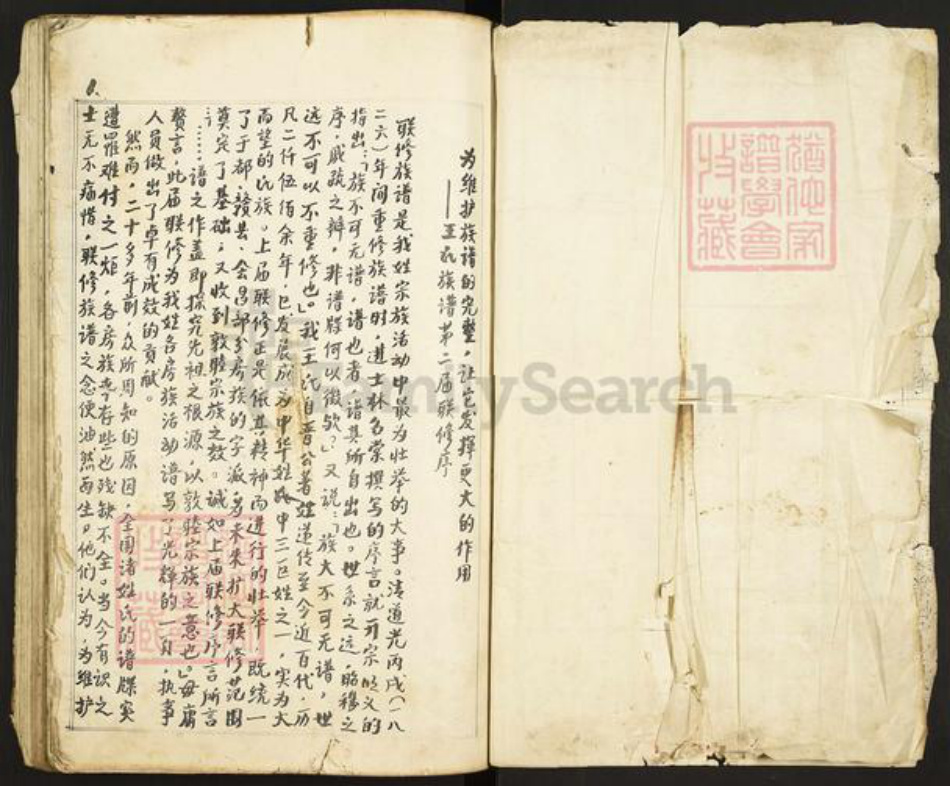 为维护族谱的完整，让它发挥更大的作用
——王氏族谱第二届联修序
联修族谱是我姓宗族活动中最为壮举的大事。清道光丙戌（一八
二六）年间重修族谱时，进士林名棠撰写的序言就开宗明义的
指出：「族不可无谱，谱也者，谱其所自出也。世系之远，昭穆之
序，戚疏之辨，非谱牒何以徵欤？」又说：「族大不可无谱，世
远不可以不重修也。」我王氏自晋公著姓递传至今近百代，历
凡二仟伍佰余年，已发展成为中华姓氏中三巨姓之一，实为大
而望的氏族。上届联修正是依其精神而进行的壮举，既统一
了于都、赣县、会昌部分房族的字派，为未来扩大联修范围
奠定了基础；又收到敦睦宗族之效。诚如上届联修序言所言
：……谱之作盖即探究先祖之根源，以敦睦宗族之意也。」毋庸
赘言，此届联修为我姓各房族活动谱写了光辉的一页，执事
人员做出了卓有成效的贡献。
然而，二十多年前，众所周知的原因，全国诸姓氏的谱牒实
遭罹难付之一炬，各房族幸存些也残缺不全。当今有识之
士无不痛惜，联修族谱之念便油然而生。他们认为，为维护
1.
谱学会
收藏
FamilySearch